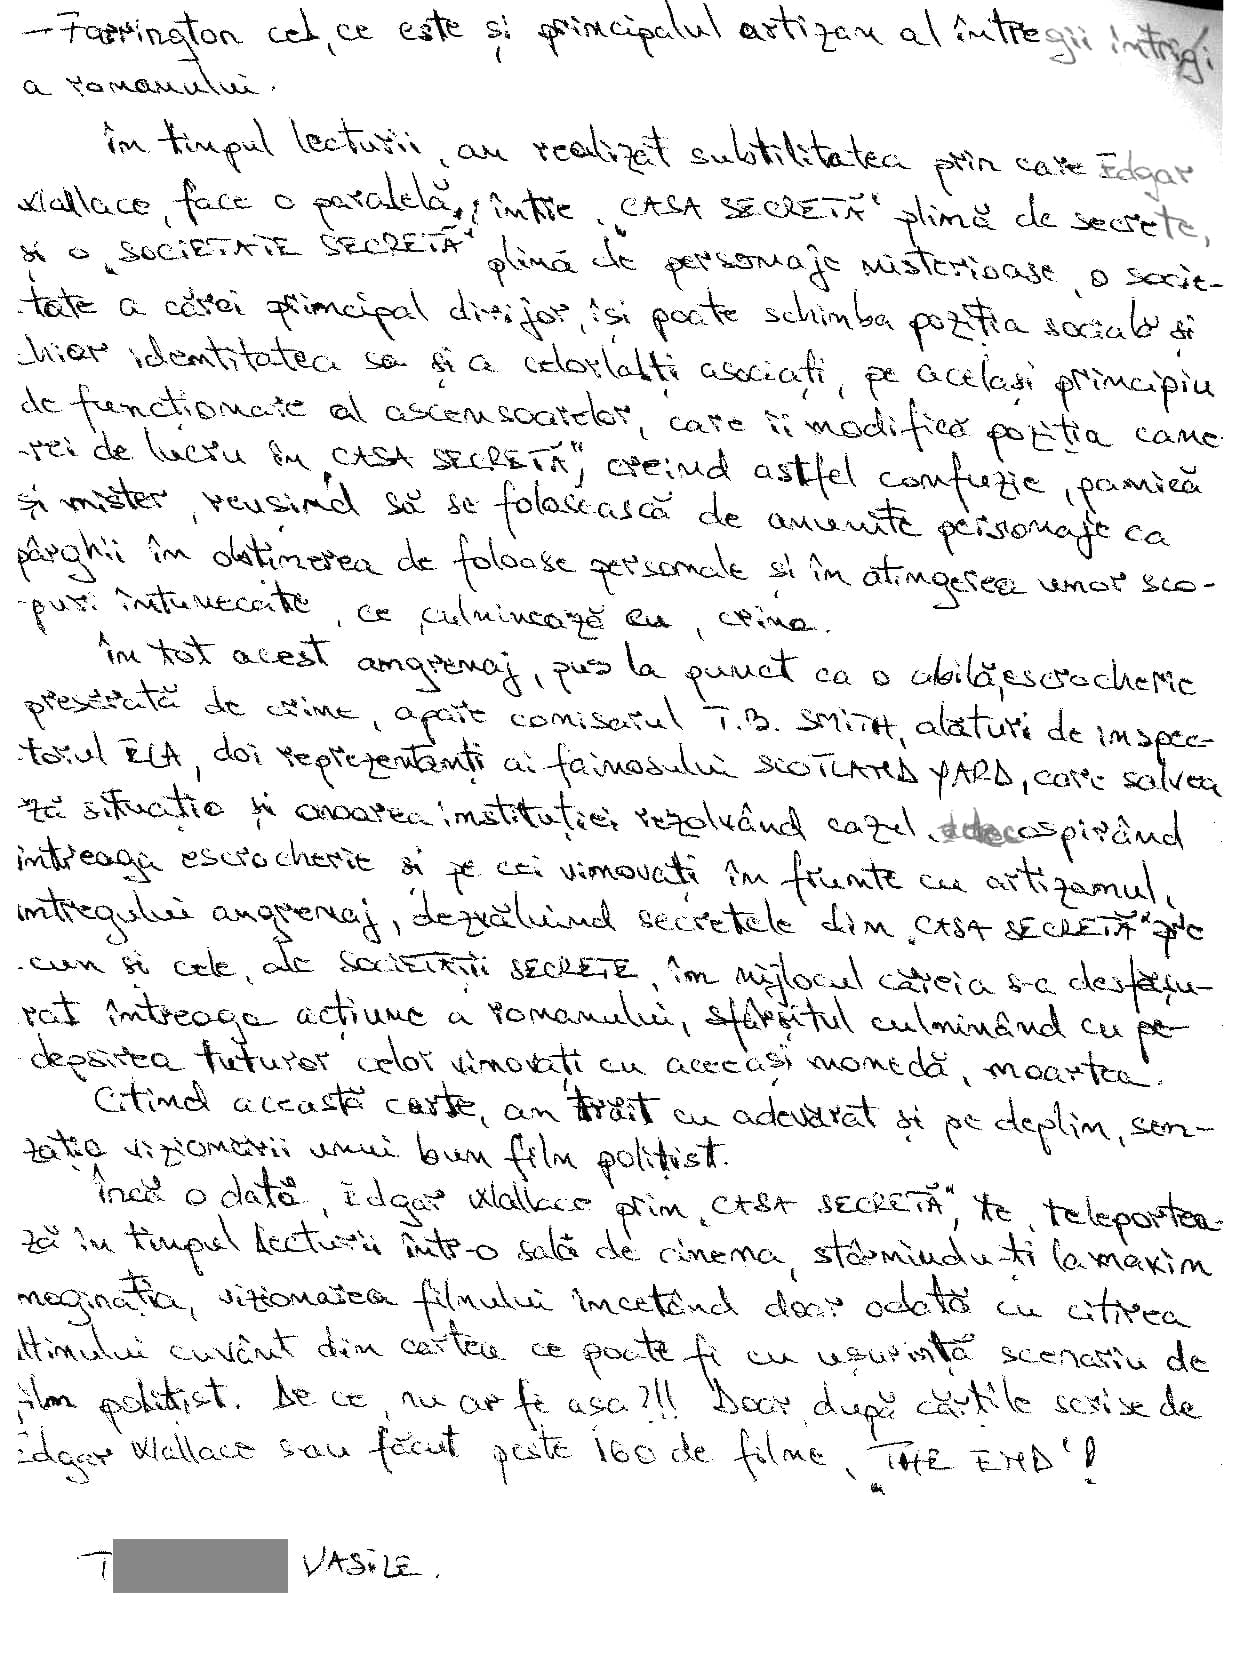 - Farrington cel, ce este și principalul artizan al întregii intrigi
a romanului.
În timpul lecturii, am realizat subtilitatea prin care Edgar
Wallace, face o paralelă, între „CASA SECRETĂ" plină de secrete,
și o „SOCIETATE SECRETĂ" plină de personaje misterioase, o socie-
tate a cărei principal dirijor, își poate schimba poziția socială și
chiar identitatea sa și a celorlalți asociați, pe același principiu
de funcționare al ascensoarelor, care îi modifică poziția came-
rei de lucru în „CASA SECRETĂ", creind astfel confuzie, panică
și mister, reusind să se folosească de anumite personaje ca
pârghii în obținerea de foloase personale și în atingerea unor sco-
puri întunecate, ce culminează cu, crima.
În tot acest angrenaj, pus la punct ca o abilă, escrocherie
presărată de crime, apare comisarul T.B. SMITH, alături de inspec-
torul ELA, doi reprezentanți ai faimosului SCOTLAND YARD, care salvea
ză situația și onoarea instituției rezolvând cazul, decospirând
intreaga escrocherie și pe cei vinovați în frunte cu artizanul,
intregului angrenaj, dezvăluind secretele din „CASA SECRETĂ" pre
cum și cele, ale SOCIETĂȚII SECRETE, în mijlocul căreia s-a desfășu-
rat întreaga acțiune a romanului, sfârșitul culminând cu pe-
depsirea tuturor celor vinovați cu aceeași monedă, moartea.
Citind această carte, am trăit cu adevărat și pe deplin, sen-
zația vizionării unui bun film polițist.
Încă o dată, Edgar Wallace prin „CASA SECRETĂ", te, teleportea-
ză în timpul lecturii într-o sală de cinema, stârnindu-ți la maxim
maginația, vizionarea filmului încetând doar odată cu citirea
ltimului cuvânt din cartea ce poate fi cu ușurință scenariu de
film polițist. De ce, nu ar fi așa?!! Doar, după cărțile scrise de
Edgar Wallace sau făcut peste 160 de filme, „THE END"!
T VASILE.